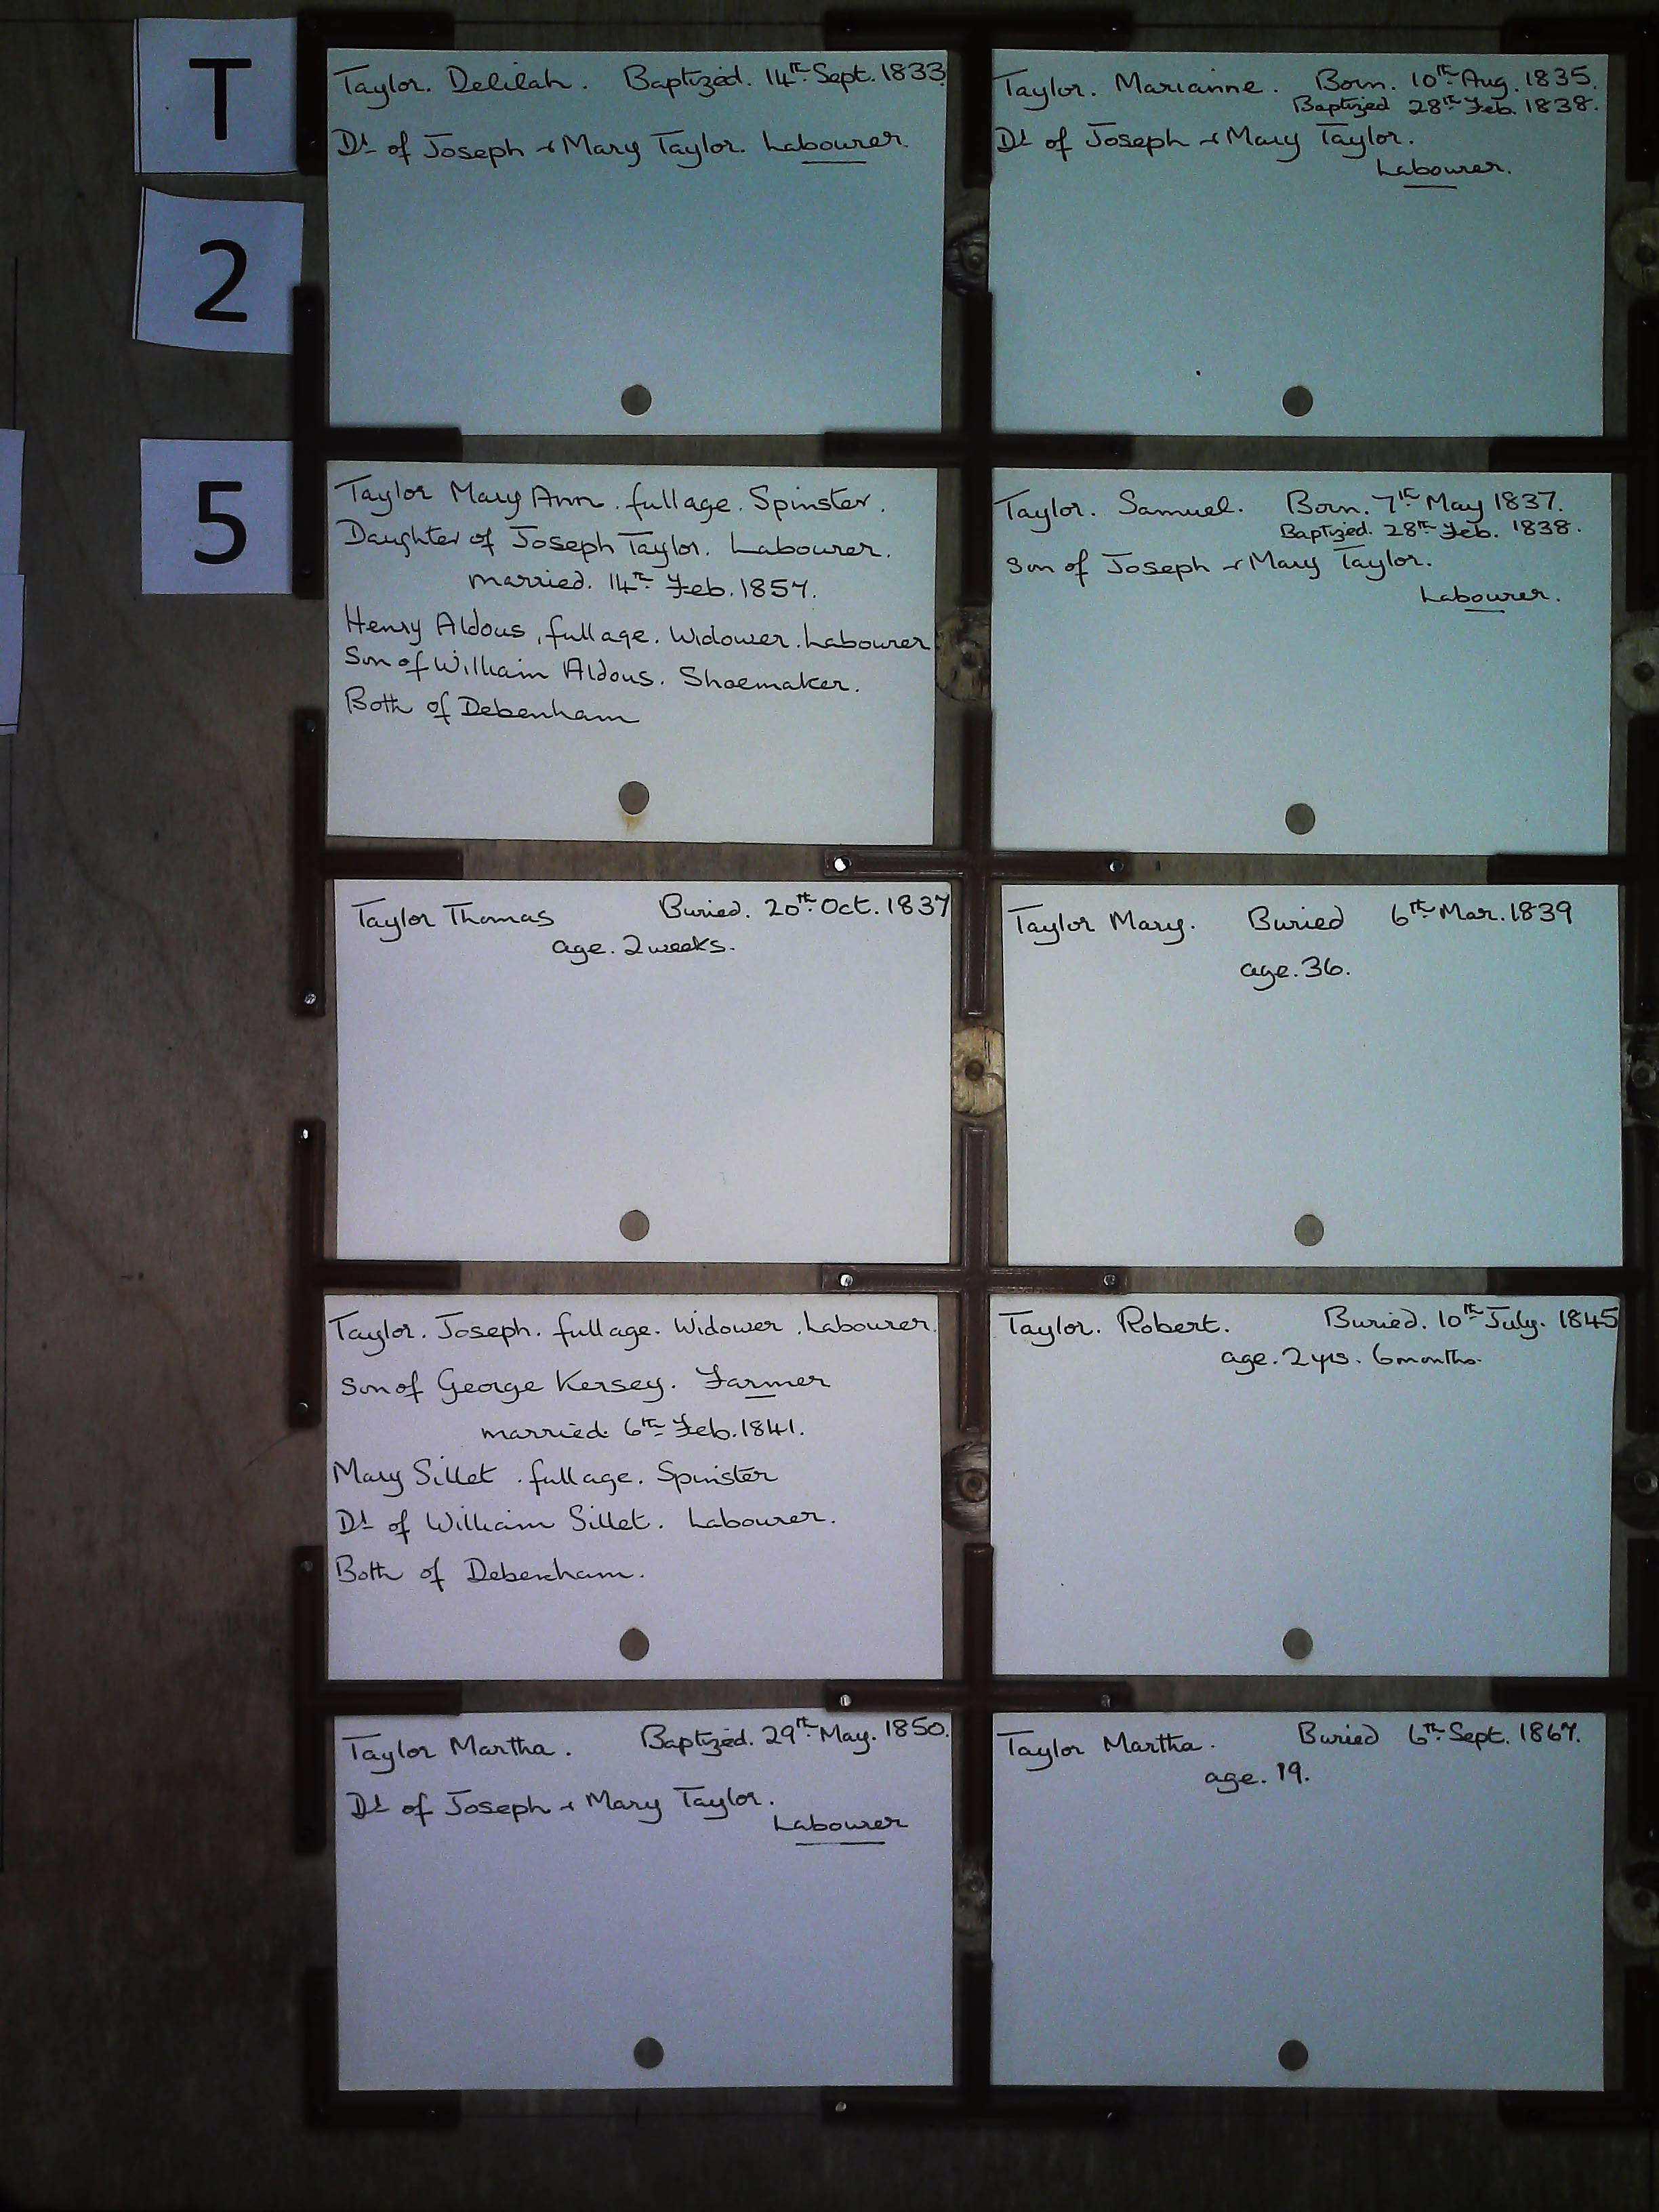 T
2
5
Taylor. Delilah. Baptized. 14th Sept. 1833.
Dt of Joseph & Mary Taylor. Labourer.
Taylor. Marianne. Born. 10th Aug. 1835.
Baptized 28th Feb. 1838.
Dt of Joseph & Mary Taylor.
Labourer.
Taylor Mary Ann. full age. Spinster.
Daughter of Joseph Taylor. Labourer.
married. 14th Feb. 1857.
Henry Aldous, full age. Widower. Labourer
Son of William Aldous. Shoemaker.
Both of Debenham
Taylor. Samuel. Born. 7th May 1837.
Baptized. 28th Feb. 1838.
Son of Joseph & Mary Taylor.
Labourer.
Taylor Thomas Buried. 20th Oct. 1837
age. 2 weeks.
Taylor Mary. Buried 6th Mar. 1839
age. 36.
Taylor. Joseph. full age. Widower. Labourer.
Son of George Kersey. Farmer
married. 6th Feb. 1841.
Mary Sillet. full age. Spinster
Dt of William Sillet. Labourer.
Both of Debenham.
Taylor. Robert. Buried. 10th July. 1845
age. 2 yrs. 6 months.
Taylor Martha. Baptized. 29th May. 1850.
Dt of Joseph & Mary Taylor.
Labourer
Taylor Martha. Buried 6th Sept. 1867.
age. 19.